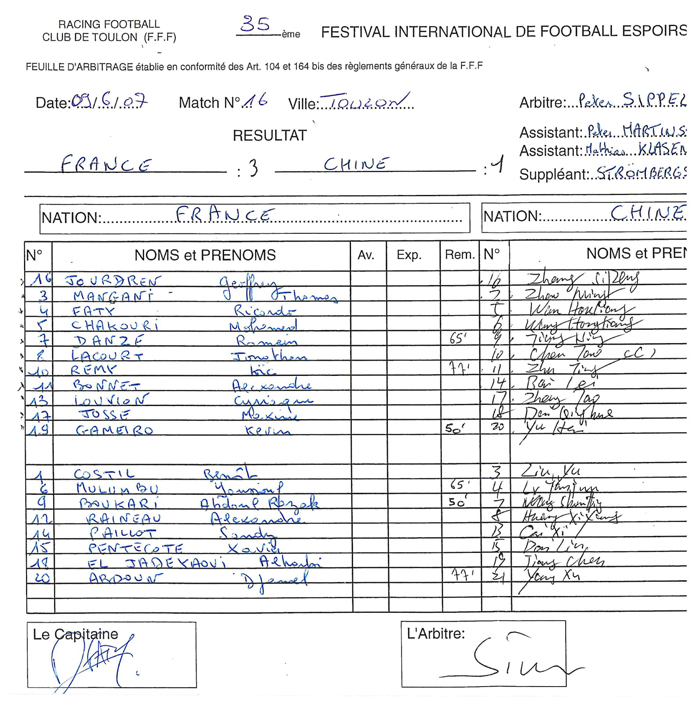 RACING FOOTBALL
CLUB DE TOULON (F.F.F)
35 ème FESTIVAL INTERNATIONAL DE FOOTBALL ESPOIRS
FEUILLE D'ARBITRAGE établie en conformité des Art. 104 et 164 bis des règlements généraux de la F.F.F
Date: 09/6/07 Match N° 16 Ville: TOULON Arbitre: Peter SIPPEL
RESULTAT Assistant: Peter MARTINS
Assistant: Mathias KLASEN
FRANCE : 3 CHINE : 1 Suppléant: STRÖMBERGS
NATION: FRANCE NATION: CHINE
N° NOMS et PRENOMS Av. Exp. Rem. N° NOMS et PREN
16 JOURDREN Geoffrey 16 Zhang SiPeng
3 MANGANI Thomas 2 Zhao Ming
4 FATY Ricardo 5
5 CHAKOURI Mohamed 6
7 DANZE Romain 65' 9
8 LACOURT Jonathan 10 Chen Tao (C)
10 REMY Loïc 77' 11
11 BONNET Alexandre 14 Bai Lei
13 LOUVION Cyriaque 17 Zheng Tao
17 JOSSE Maxime 18
19 GAMEIRO Kevin 50' 20 Yu Hai
1 COSTIL Benoît 3 Liu Yu
6 MULUMBU Youssouf 65' 4
9 BOUKARI Abdoul Razak 50' 7
12 RAINEAU Alexandre 8
14 PAILLOT Sandy 13 Cai Xi
15 PENTECOTE Xavier 15
18 EL JADEYAOUI Alharbi 19 Jiang Chen
20 ARDOUN Djamel 77' 21 Yang Xu
Le Capitaine L'Arbitre: